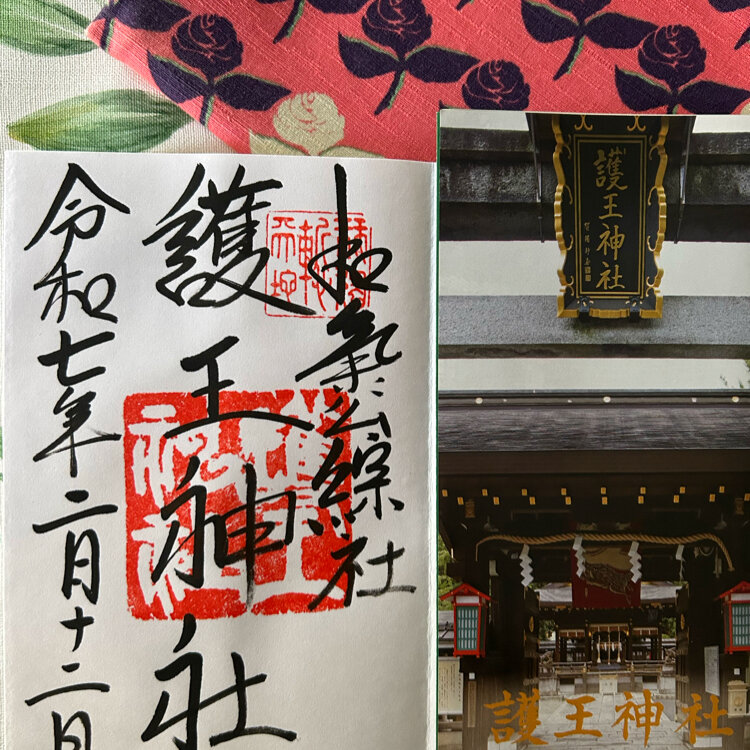 和氣公綜社
護王神社
令和七年二月十二日
護王神社
護王神社
護王神社